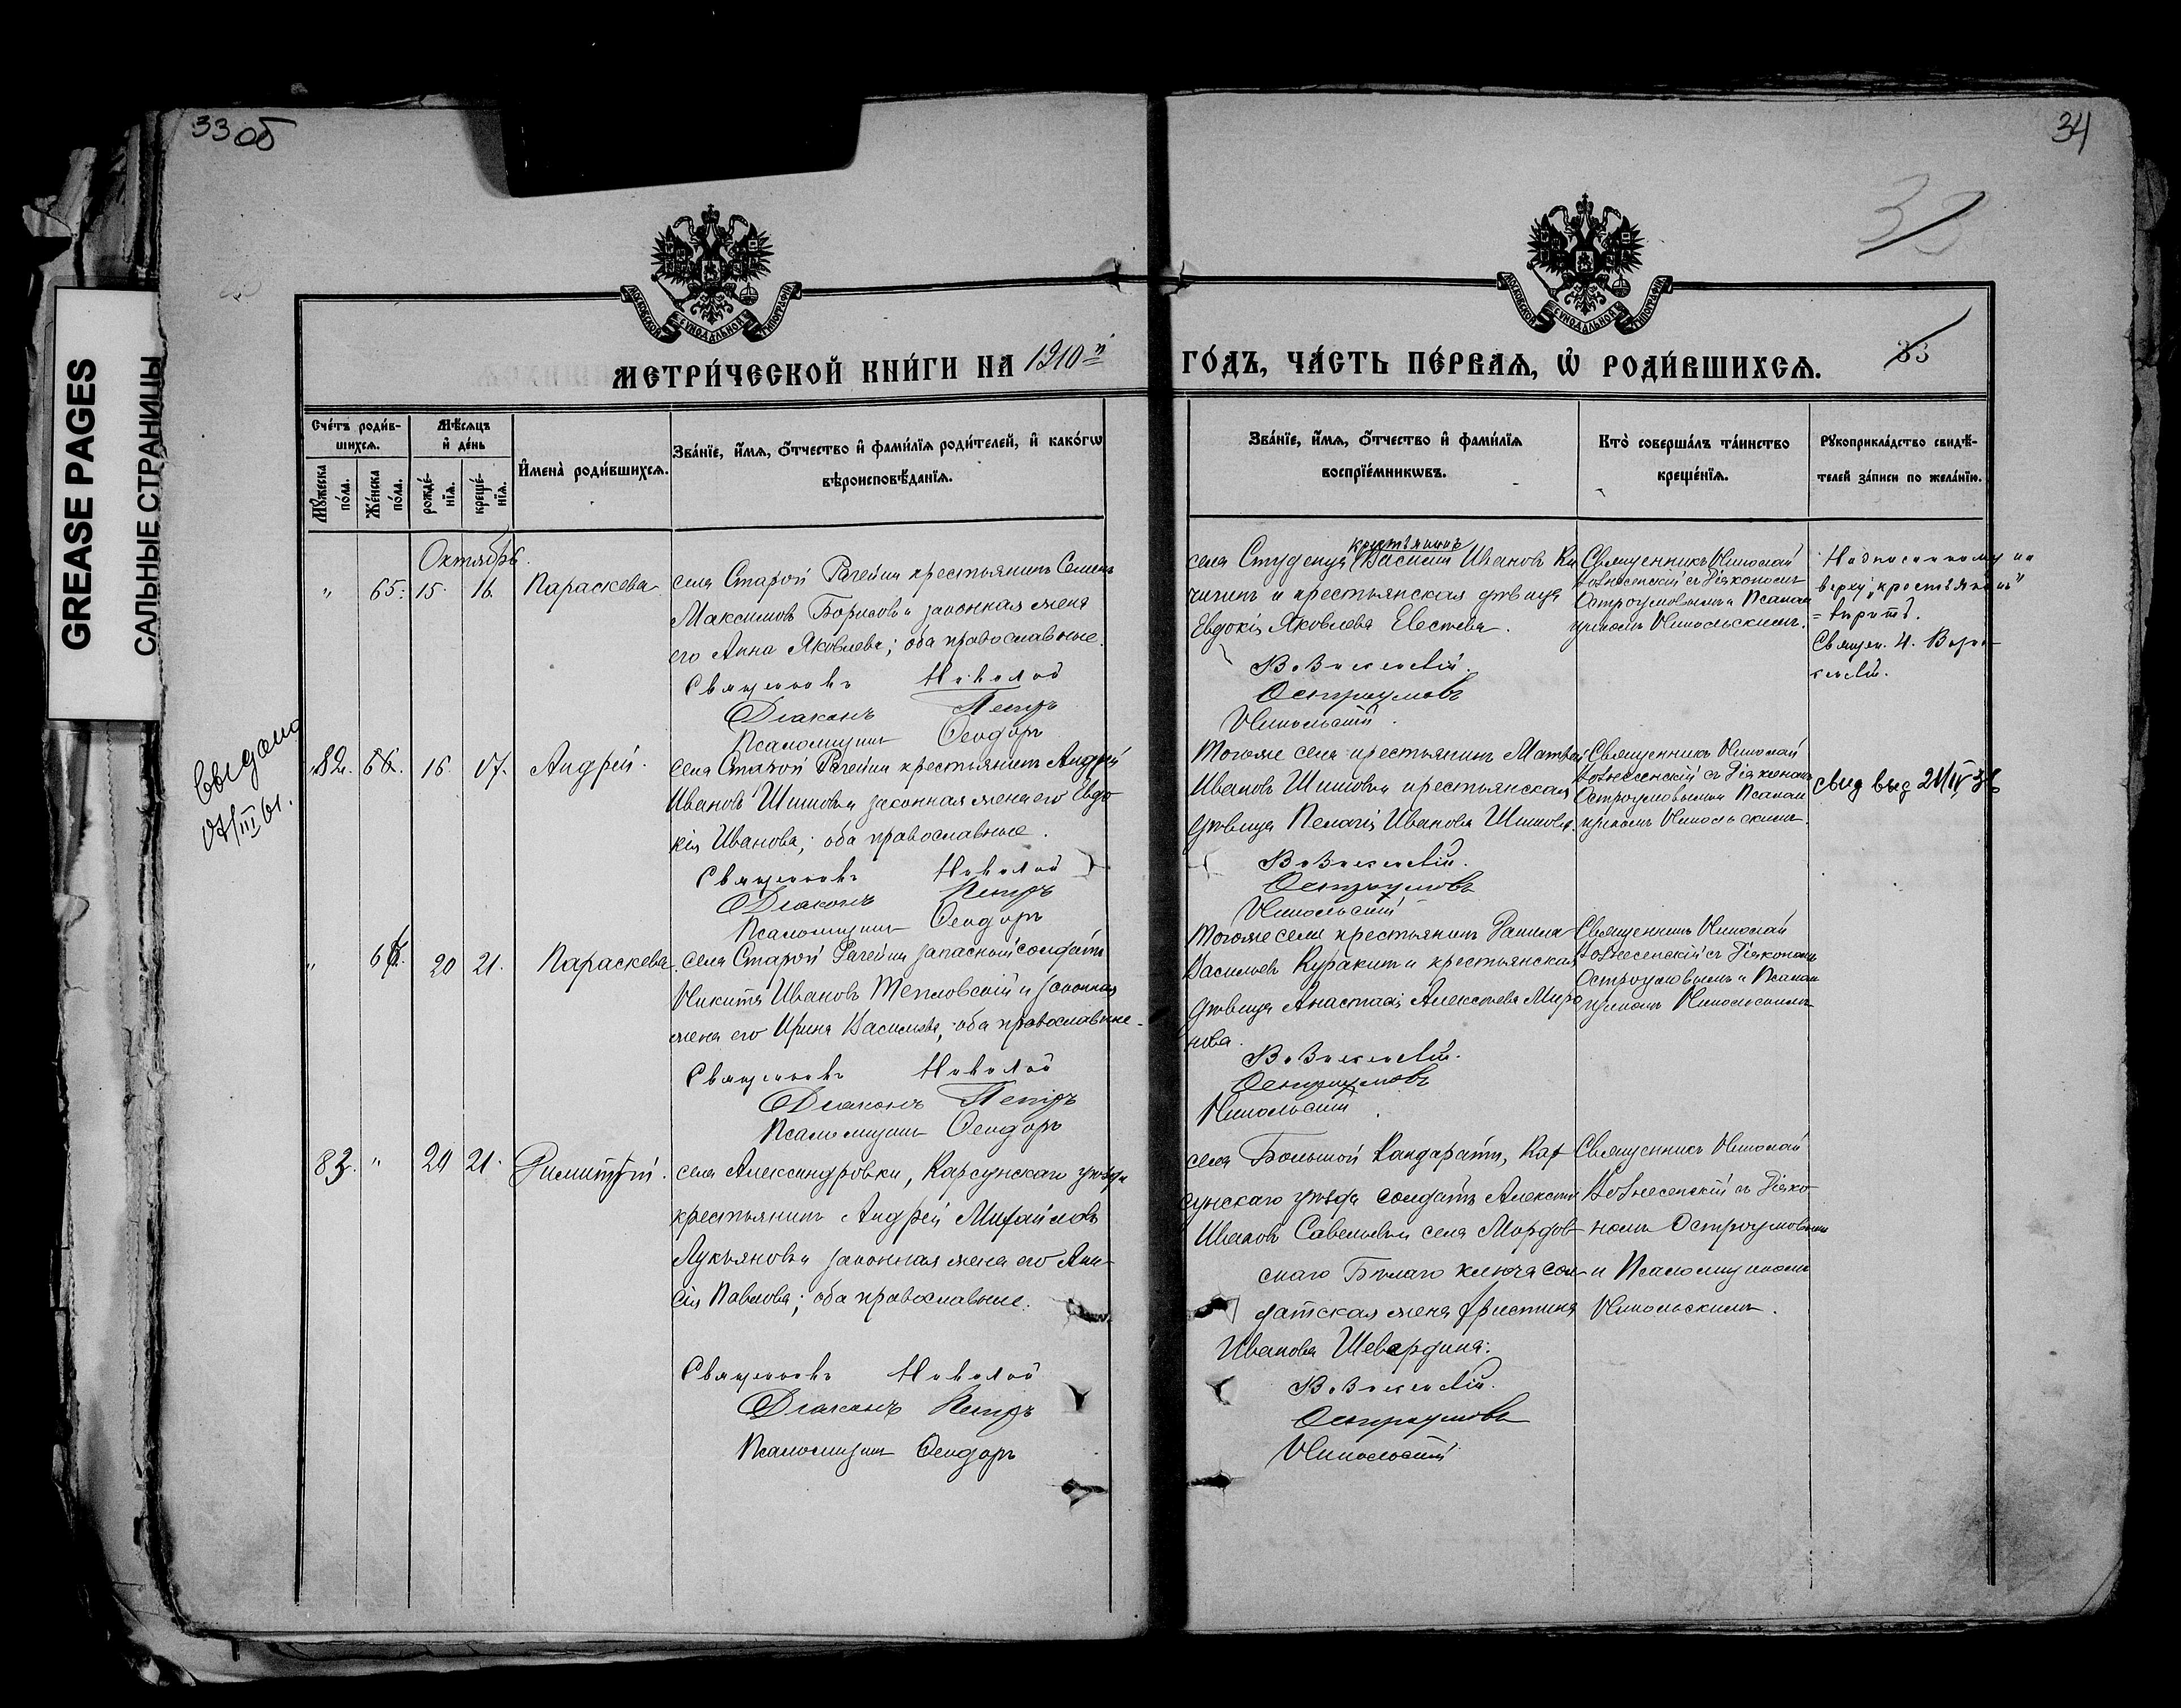 33 об
34
33
GREASE PAGES
САЛЬНЫЕ СТРАНИЦЫ
МОСКОВСКОЙ СѴНОДАЛЬНОЙ ТИПОГРАФІИ
МОСКОВСКОЙ СѴНОДАЛЬНОЙ ТИПОГРАФІИ
МЕТРИ́ЧЕСКОЙ КНИ́ГИ НА 1910 й
ГО́ДЪ, ЧА́СТЬ ПЕ́РВАѦ, Ѡ҆ РОДИ́ВШИХСѦ.
33
Сче́тъ роди́в-
шихсѧ.
Мꙋ́жеска по́ла.
Же́нска по́ла.
Мѣ́сѧцъ
и҆ де́нь
рожде́-
нїѧ.
креще́-
нїѧ.
И҆мена̀ роди́вшихсѧ.
Зва́нїе, и҆́мѧ, ѻ҆́тчество и҆ фами́лїѧ роди́телей, и҆ како́гѡ
вѣроисповѣ́данїѧ.
Зва́нїе, и҆́мѧ, ѻ҆́тчество и҆ фами́лїѧ
воспрїе́мникѡвъ.
Кто̀ соверша́лъ та́инство
креще́нїѧ.
Рꙋкоприкла́дство свидѣ́-
телей за́писи по жела́нїю.
Октябрь.
" 65. 15. 16. Параскева
села Старой Рачейки крестьянинъ Семенъ
Максимовъ Борисовъ и законная жена
его Анна Яковлева; оба православные.
Священникъ Николай
Діаконъ Петръ
Псаломщикъ Ѳеодоръ
крестьянинъ
села Студенца Василій Иванов Ки
чигинъ и крестьянская дѣвица
Евдокія Яковлева Евстева.
Вознесенскій.
Остроумовъ
Никольскій.
Священникъ Николай
Вознесенскій съ Діакономъ
Остроумовымъ и Псалом
щикомъ Никольскимъ.
Надписанному на
верху „крестьянинъ"
= вѣрить.
Священ. Н. Возне-
сенскій.
Выдано
17/III 61.
82. 66. 16. 17. Андрей.
села Старой Рачейки крестьянинъ Андрей
Ивановъ Шишовъ и законная жена его Евдо
кія Иванова; оба православные.
Священникъ Николай
Діаконъ Петръ
Псаломщикъ Ѳеодоръ
Тогоже села крестьянинъ Матвей
Ивановъ Шишовъ и крестьянская
дѣвица Пелагія Иванова Шишова.
Вознесенскій.
Остроумовъ
Никольскій
Священникъ Николай
Вознесенскій съ Діакономъ
Остроумовымъ и Псалом
щикомъ Никольскимъ.
свид выд 21/IV 36
" 66. 20 21. Параскева.
села Старой Рачейки запасный солдатъ
Никита Ивановъ Тепловскій и законная
жена его Ирина Васильева; оба православные.
Священникъ Николай
Діаконъ Петръ
Псаломщикъ Ѳеодоръ
Тогоже села крестьянинъ Данила
Васильевъ Куракинъ и крестьянская
дѣвица Анастасія Алексѣева Миро
нова.
Вознесенскій.
Остроумовъ
Никольскій.
Священникъ Николай
Вознесенскій съ Діакономъ
Остроумовымъ и Псалом
щикомъ Никольскимъ
83. " 20 21. Димитрій.
села Александровки, Карсунскаго уѣзда
крестьянинъ Андрей Михайловъ
Лукъяновъ и законная жена его Ани-
сія Павлова; оба православные.
Священникъ Николай
Діаконъ Петръ
Псаломщикъ Ѳеодоръ
села Большой Кандарати, Кар
сунскаго уѣзда солдатъ Алексѣй
Иванов Савельевъ и села Мордов-
скаго Бѣлаго ключа сол-
датская жена Христина
Иванова Шевардина.
Вознесенскій.
Остроумовъ
Никольскій
Священникъ Николай
Вознесенскій съ Діако-
номъ Остроумовымъ
и Псаломщикомъ
Никольскимъ.